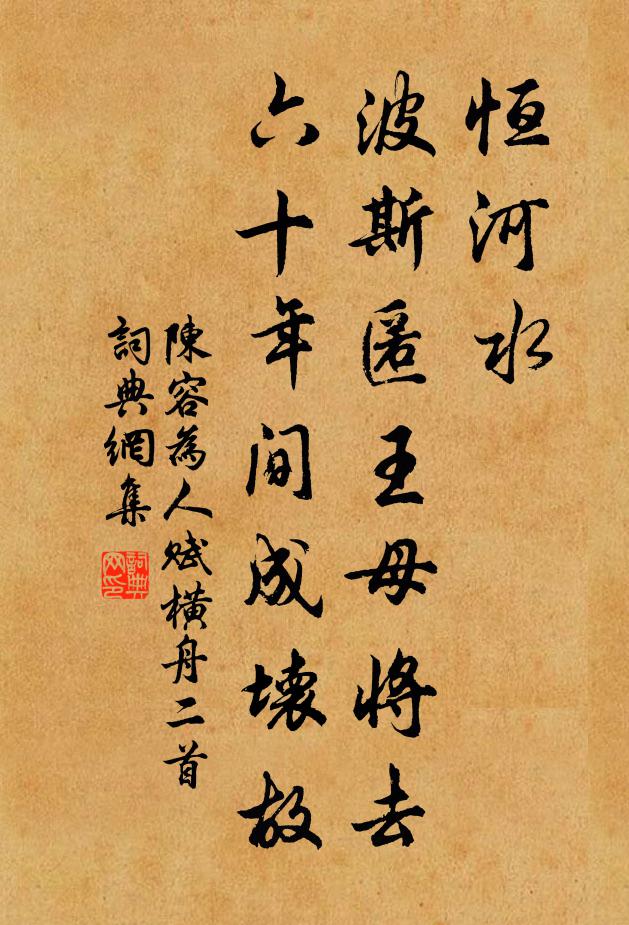 恒河水
波斯匿王母將去
六十年间成壞故
陳容為人賦橫舟二首
詞典網集
詞典
网印